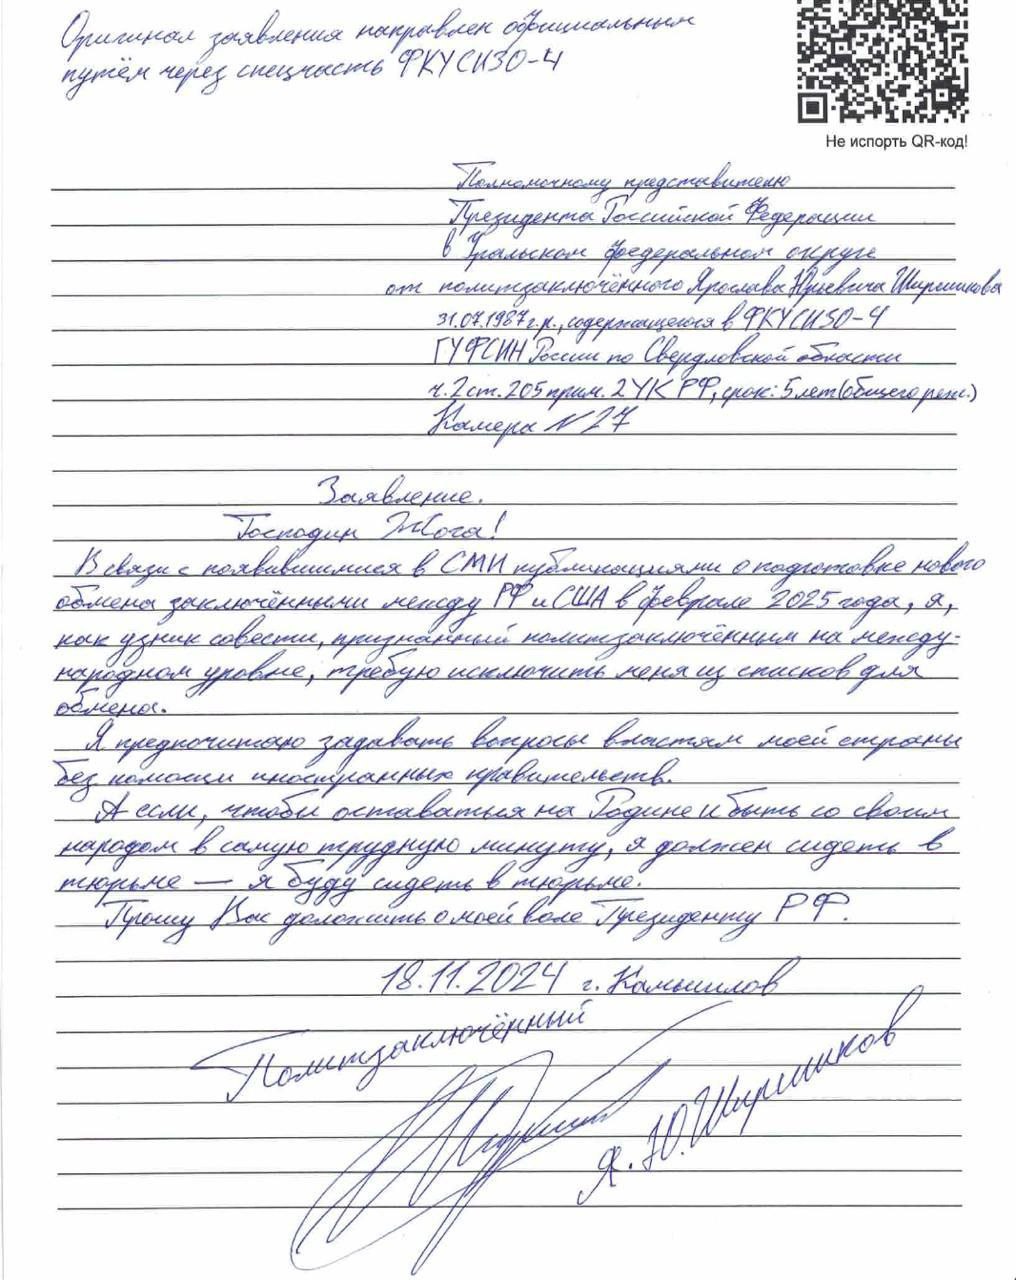 Оригинал заявления направлен официальным
путём через спецчасть ФКУСИЗО-4
Не испорть QR-код!
Полномочному представителю
Президента Российской Федерации
в Уральском федеральном округе
от политзаключённого Ярослава Юрьевича Ширшикова
31.07.1987г.р., содержащегося в ФКУСИЗО-4
ГУФСИН России по Свердловской области
ч.2 ст.205 прим. 2 УК РФ, срок: 5 лет (общего реж.)
Камера №27
Заявление.
Господин Жога!
В связи с появившимися в СМИ публикациями о подготовке нового
обмена заключёнными между РФ и США в феврале 2025 года, я,
как узник совести, признанный политзаключённым на между-
народном уровне, требую исключить меня из списков для
обмена.
Я предпочитаю задавать вопросы властям моей страны
без помощи иностранных правительств.
А если, чтобы оставаться на Родине и быть со своим
народом в самую трудную минуту, я должен сидеть в
тюрьме — я буду сидеть в тюрьме.
Прошу Вас доложить о моей воле Президенту РФ.
18.11.2024 г. Камышлов
Политзаключённый
Я.Ю.Ширшиков